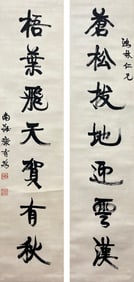 蒼松拔地迎雲漢
鴻林仁兄
梧葉飛天賀有秋
南海康有為